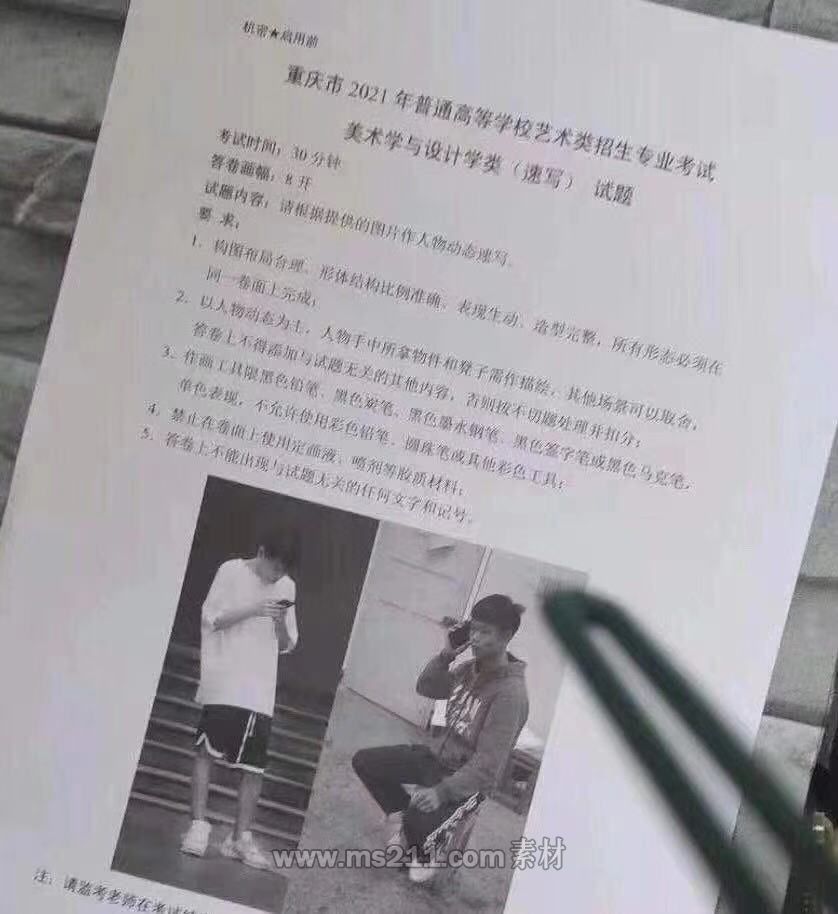 机密★启用前
重庆市 2021 年普通高等学校艺术类招生专业考试
美术学与设计学类（速写） 试题
考试时间：30 分钟
答卷画幅：8 开
试题内容：请根据提供的图片作人物动态速写。
要 求：
1．构图布局合理、形体结构比例准确、表现生动、造型完整，所有形态必须在
同一卷面上完成；
2．以人物动态为主，人物手中所拿物件和凳子需作描绘，其他场景可以取舍，
答卷上不得添加与试题无关的其他内容，否则按不切题处理并扣分；
3．作画工具限黑色铅笔、黑色炭笔、黑色墨水钢笔、黑色签字笔或黑色马克笔，
单色表现，不允许使用彩色铅笔、圆珠笔或其他彩色工具；
4．禁止在卷面上使用定画液、喷剂等胶质材料；
5．答卷上不能出现与试题无关的任何文字和记号。
www.ms211.com素材
注：请监考老师在考试